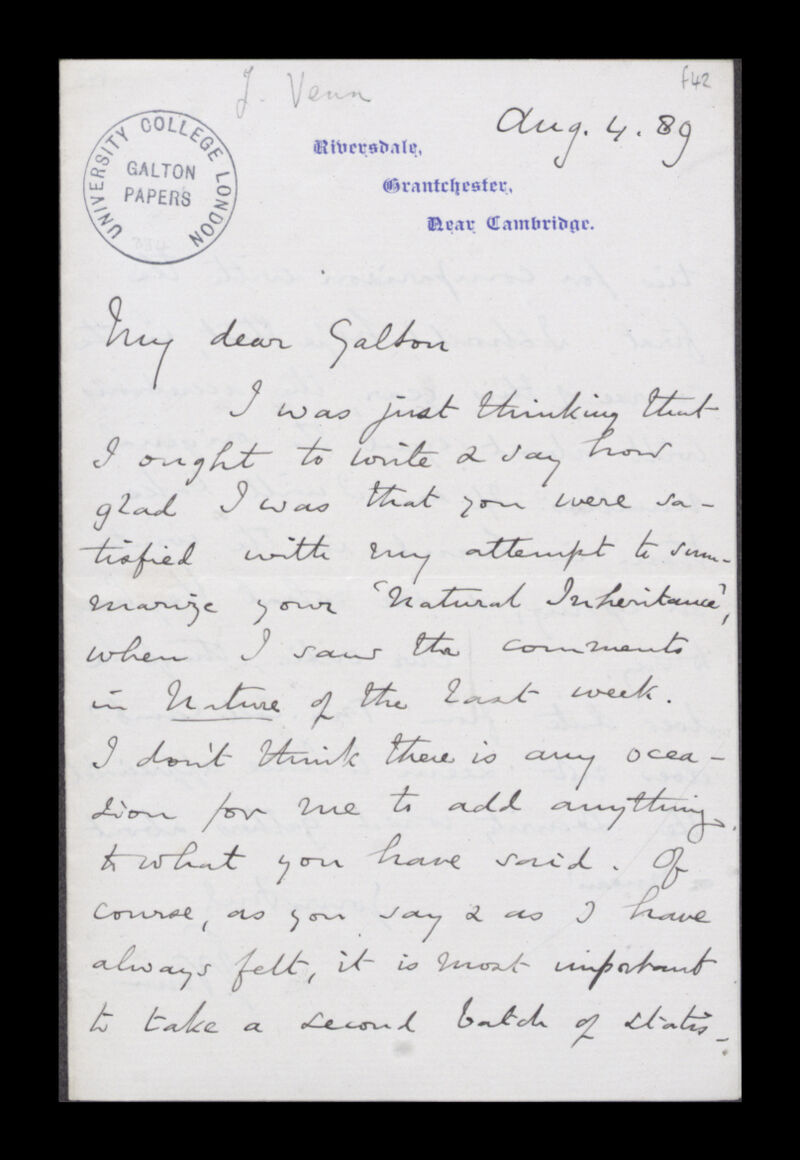 J. Venn
f42
UNIVERSITY COLLEGE LONDON
GALTON
PAPERS
Aug. 4. 89
Riversdale,
Grantchester,
Near Cambridge.
My dear Galton
I was just thinking that
I ought to write & say how
glad I was that you were sa-
tisfied with my attempt to sum-
marize your 'Natural Inheritance',
when I saw the comments
in Nature of the last week.
I don't think there is any occa-
sion for me to add anything
to what you have said. Of
course, as you say & as I have
always felt, it is most important
to take a second batch of statis-